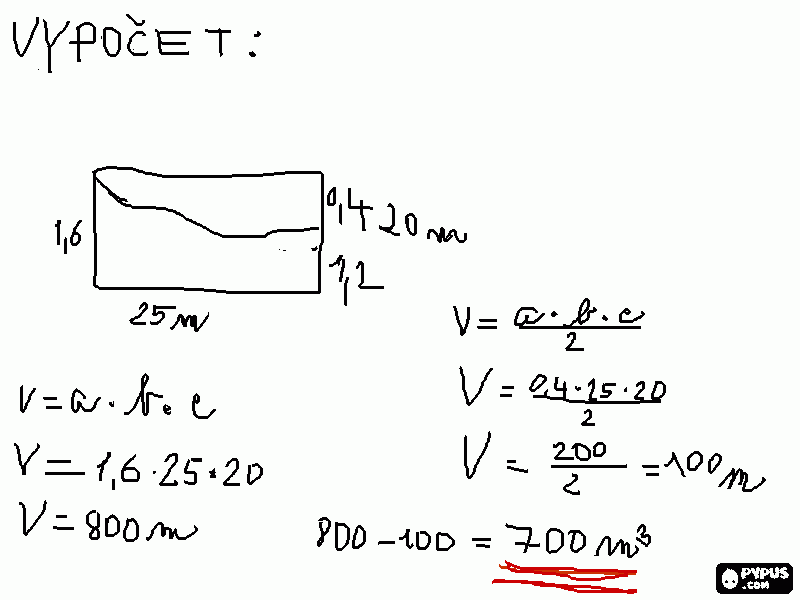 VYPOČET:
1,6
0,4
20 m
1,2
25 m
V = a · b · c
V = 1,6 · 25 · 20
V = 800 m
V = a · b · c / 2
V = 0,4 · 25 · 20 / 2
V = 200 / 2 = 100 m
800 - 100 = 700 m³
PYPUS
.COM